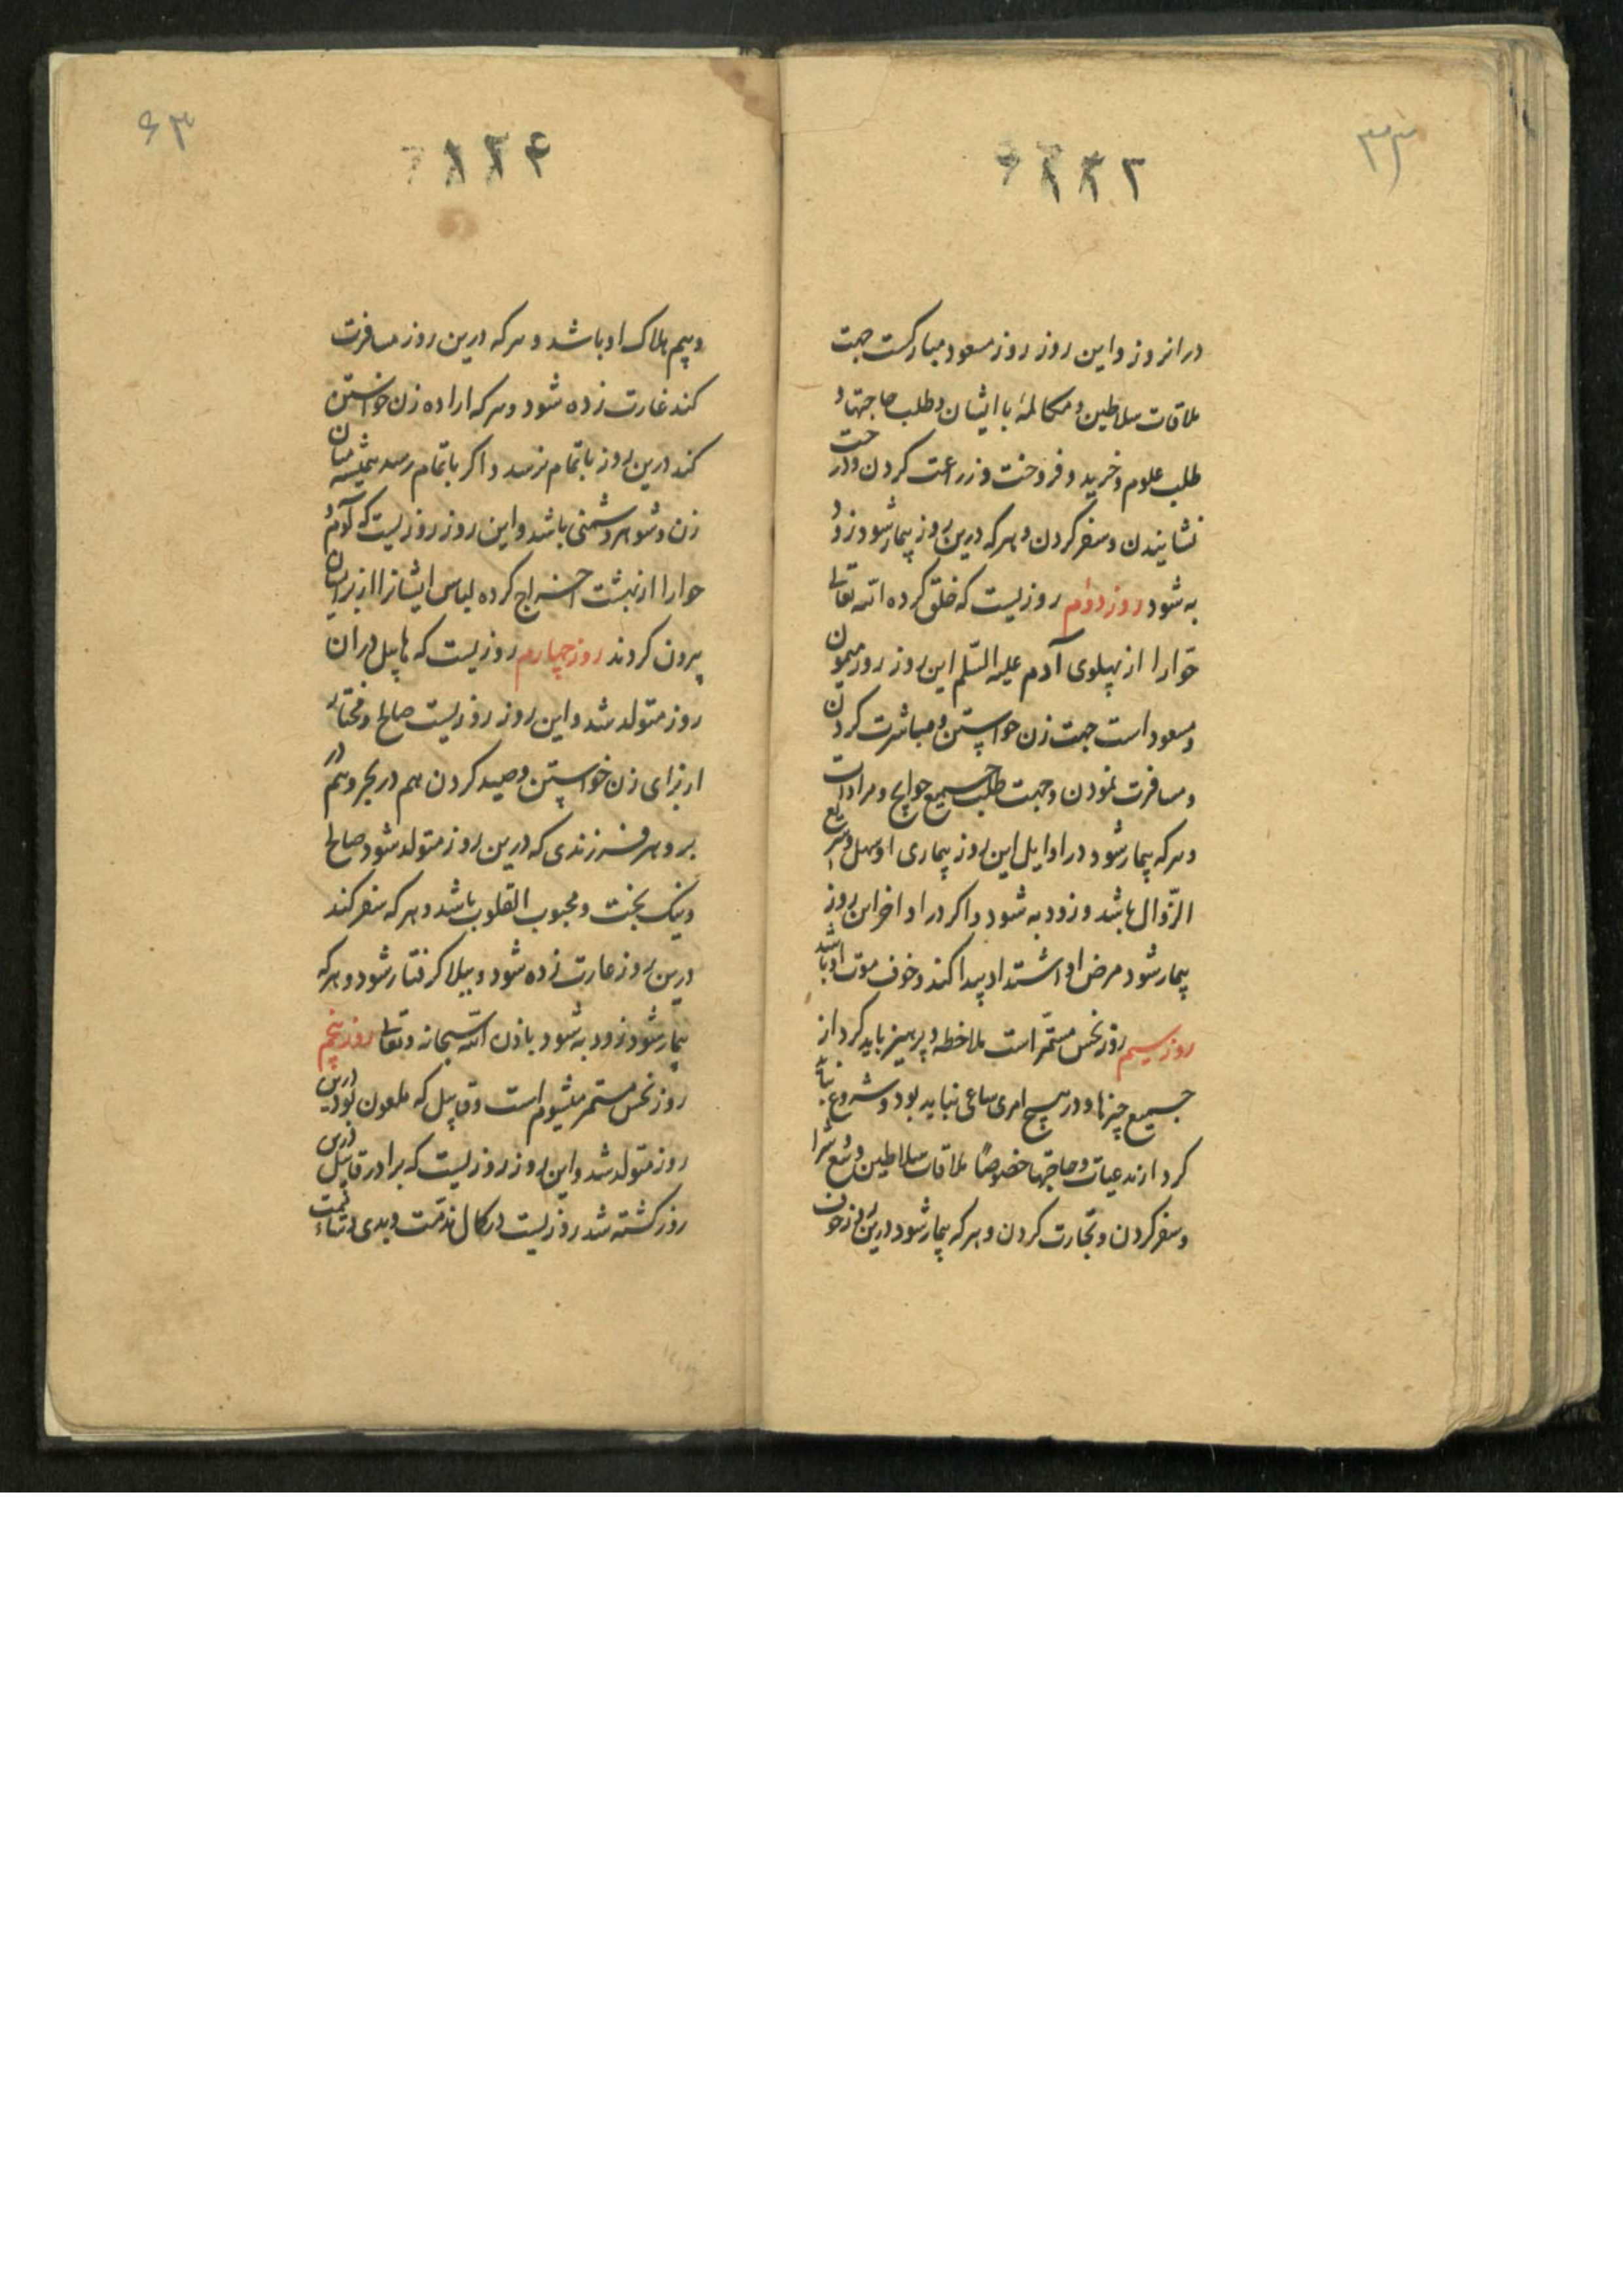 ۳۳
درانروز و این روز روز مسعود مبارکست جهت
ملاقات سلاطین و مکالمهٔ با ایشان و طلب حاجتها و
طلب علوم و خرید و فروخت و زراعت کردن و درخت
نشانیدن و سفر کردن و هرکه درین روز بیمار شود زود
به شود روز دوم روزیست که خلق کرده الله تعالی
حوّا را از پهلوی آدم علیه السّلم این روز روز میمون
و مسعود است جهت زن خواستن و مباشرت کردن
و مسافرت نمودن و جهت طلب جمیع حوایج و مرادات
و هرکه بیمار شود در اوایل این روز بیماری او سهل و سریع
الزّوال باشد و زود به شود و اکر در اواخر این روز
بیمار شود مرض او اشتداد پیدا کند و خوف موت او باشد
روز سیم روز نحس مستمّر است ملاحظه و پرهیز باید کرد از
جمیع چیزها و در هیچ امری ساعی نباید بود و شروع نباید
کرد از مدعیات و حاجتها خصوصًا ملاقات سلاطین و بیع و شرا
و سفر کردن و تجارت کردن و هرکه بیمار شود درین روز خوف
۶۳
و بیم هلاک او باشد و هرکه درین روز مسافرت
کند غارت زده شود و هرکه اراده زن خواستن
کند درین روز باتمام نرسد و اکر باتمام رسد همیشه میان
زن و شوهر دشمنی باشد و این روز روزیست که آدم و
حوا را از بهشت اخراج کرده لباس ایشانرا از بر ایشان
بیرون کردند روز چهارم روزیست که هابیل دران
روز متولد شد و این روز روزیست صالح و مختار
از برای زن خواستن و صید کردن هم در بحر و هم در
بر و هر فرزندی که درین روز متولد شود صالح
و نیک بخت و محبوب القلوب باشد و هرکه سفر کند
درین روز غارت زده شود و ببلا کرفتار شود و هرکه
بیمار شود زود به شود باذن الله سبحانه و تعالی روز پنجم
روز نحس مستمر میشیوم است و قابیل که ملعون بود درین
روز متولد شد و این روز روزیست که برادر قابیل درین
روز کشته شد روزیست در کمال مذمت و بدی